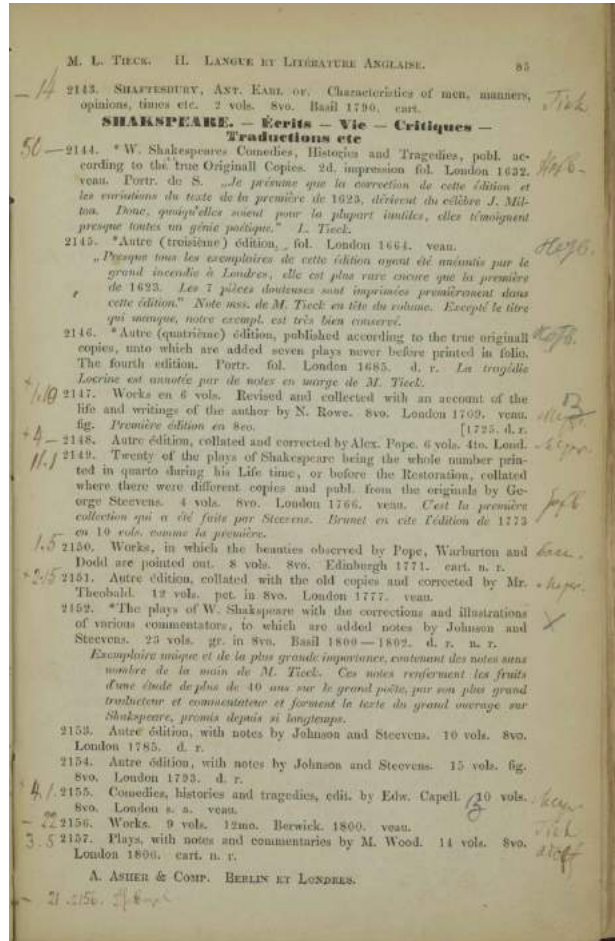 M. L. TIECK. II. LANGUE ET LITÉRATURE ANGLAISE. 85
— 14
2143. SHAFTESBURY, ANT. EARL OF. Characteristics of men, manners,
opinions, times etc. 2 vols. 8vo. Basil 1790. cart.
SHAKSPEARE. — Écrits — Vie — Critiques —
Traductions etc
50 —
2144. *W. Shakespeares Comedies, Histories and Tragedies, publ. ac-
cording to the true Originall Copies. 2d. impression fol. London 1632.
veau. Portr. de S. „Je présume que la correction de cette édition et
les variations du texte de la première de 1623, dérivent du célèbre J. Mil-
ton. Donc, quoiqu'elles soient pour la plupart inutiles, elles témoignent
presque toutes un génie poétique." L. Tieck.
2145. *Autre (troisième) édition, fol. London 1664. veau.
„Presque tous les exemplaires de cette édition ayant été anéantis par le
grand incendie à Londres, elle est plus rare encore que la première
de 1623. Les 7 pièces douteuses sont imprimées premièrement dans
cette édition." Note mss. de M. Tieck en tête du volume. Excepté le titre
qui manque, notre exempl. est très bien conservé.
2146. *Autre (quatrième) édition, published according to the true originall
copies, unto which are added seven plays never before printed in folio.
The fourth edition. Portr. fol. London 1685. d. r. La tragédie
Locrine est annotée par de notes en marge de M. Tieck.
2147. Works en 6 vols. Revised and collected with an account of the
life and writings of the author by N. Rowe. 8vo. London 1709. veau.
fig. Première édition en 8vo. [1725. d. r.
+ 4 —
2148. Autre édition, collated and corrected by Alex. Pope. 6 vols. 4to. Lond.
11.1
2149. Twenty of the plays of Shakespeare being the whole number prin-
ted in quarto during his Life time, or before the Restoration, collated
where there were different copies and publ. from the originals by Ge-
orge Steevens. 4 vols. 8vo. London 1766. veau. C'est la première
collection qui a été faite par Steevens. Brunet en cite l'édition de 1773
en 10 vols. comme la première.
1.5
2150. Works, in which the beauties observed by Pope, Warburton and
Dodd are pointed out. 8 vols. 8vo. Edinburgh 1771. cart. n. r.
+ 2.15
2151. Autre édition, collated with the old copies and corrected by Mr.
Theobald. 12 vols. pet. in 8vo. London 1777. veau.
2152. *The plays of W. Shakspeare with the corrections and illustrations
of various commentators, to which are added notes by Johnson and
Steevens. 23 vols. gr. in 8vo. Basil 1800—1802. d. r. n. r.
Exemplaire unique et de la plus grande importance, contenant des notes sans
nombre de la main de M. Tieck. Ces notes renferment les fruits
d'une étude de plus de 40 ans sur le grand poëte, par son plus grand
traducteur et commentateur et forment le texte du grand ouvrage sur
Shakspeare, promis depuis si longtemps.
2153. Autre édition, with notes by Johnson and Steevens. 10 vols. 8vo.
London 1785. d. r.
2154. Autre édition, with notes by Johnson and Steevens. 15 vols. fig.
8vo. London 1793. d. r.
+ 4.1.
2155. Comedies, histories and tragedies, edit. by Edw. Capell. 10 vols.
8vo. London s. a. veau.
— 22
2156. Works. 9 vols. 12mo. Berwick. 1800. veau.
3.5
2157. Plays, with notes and commentaries by M. Wood. 14 vols. 8vo.
London 1806. cart. n. r.
A. ASHER & COMP. BERLIN ET LONDRES.
— 21. 2156.